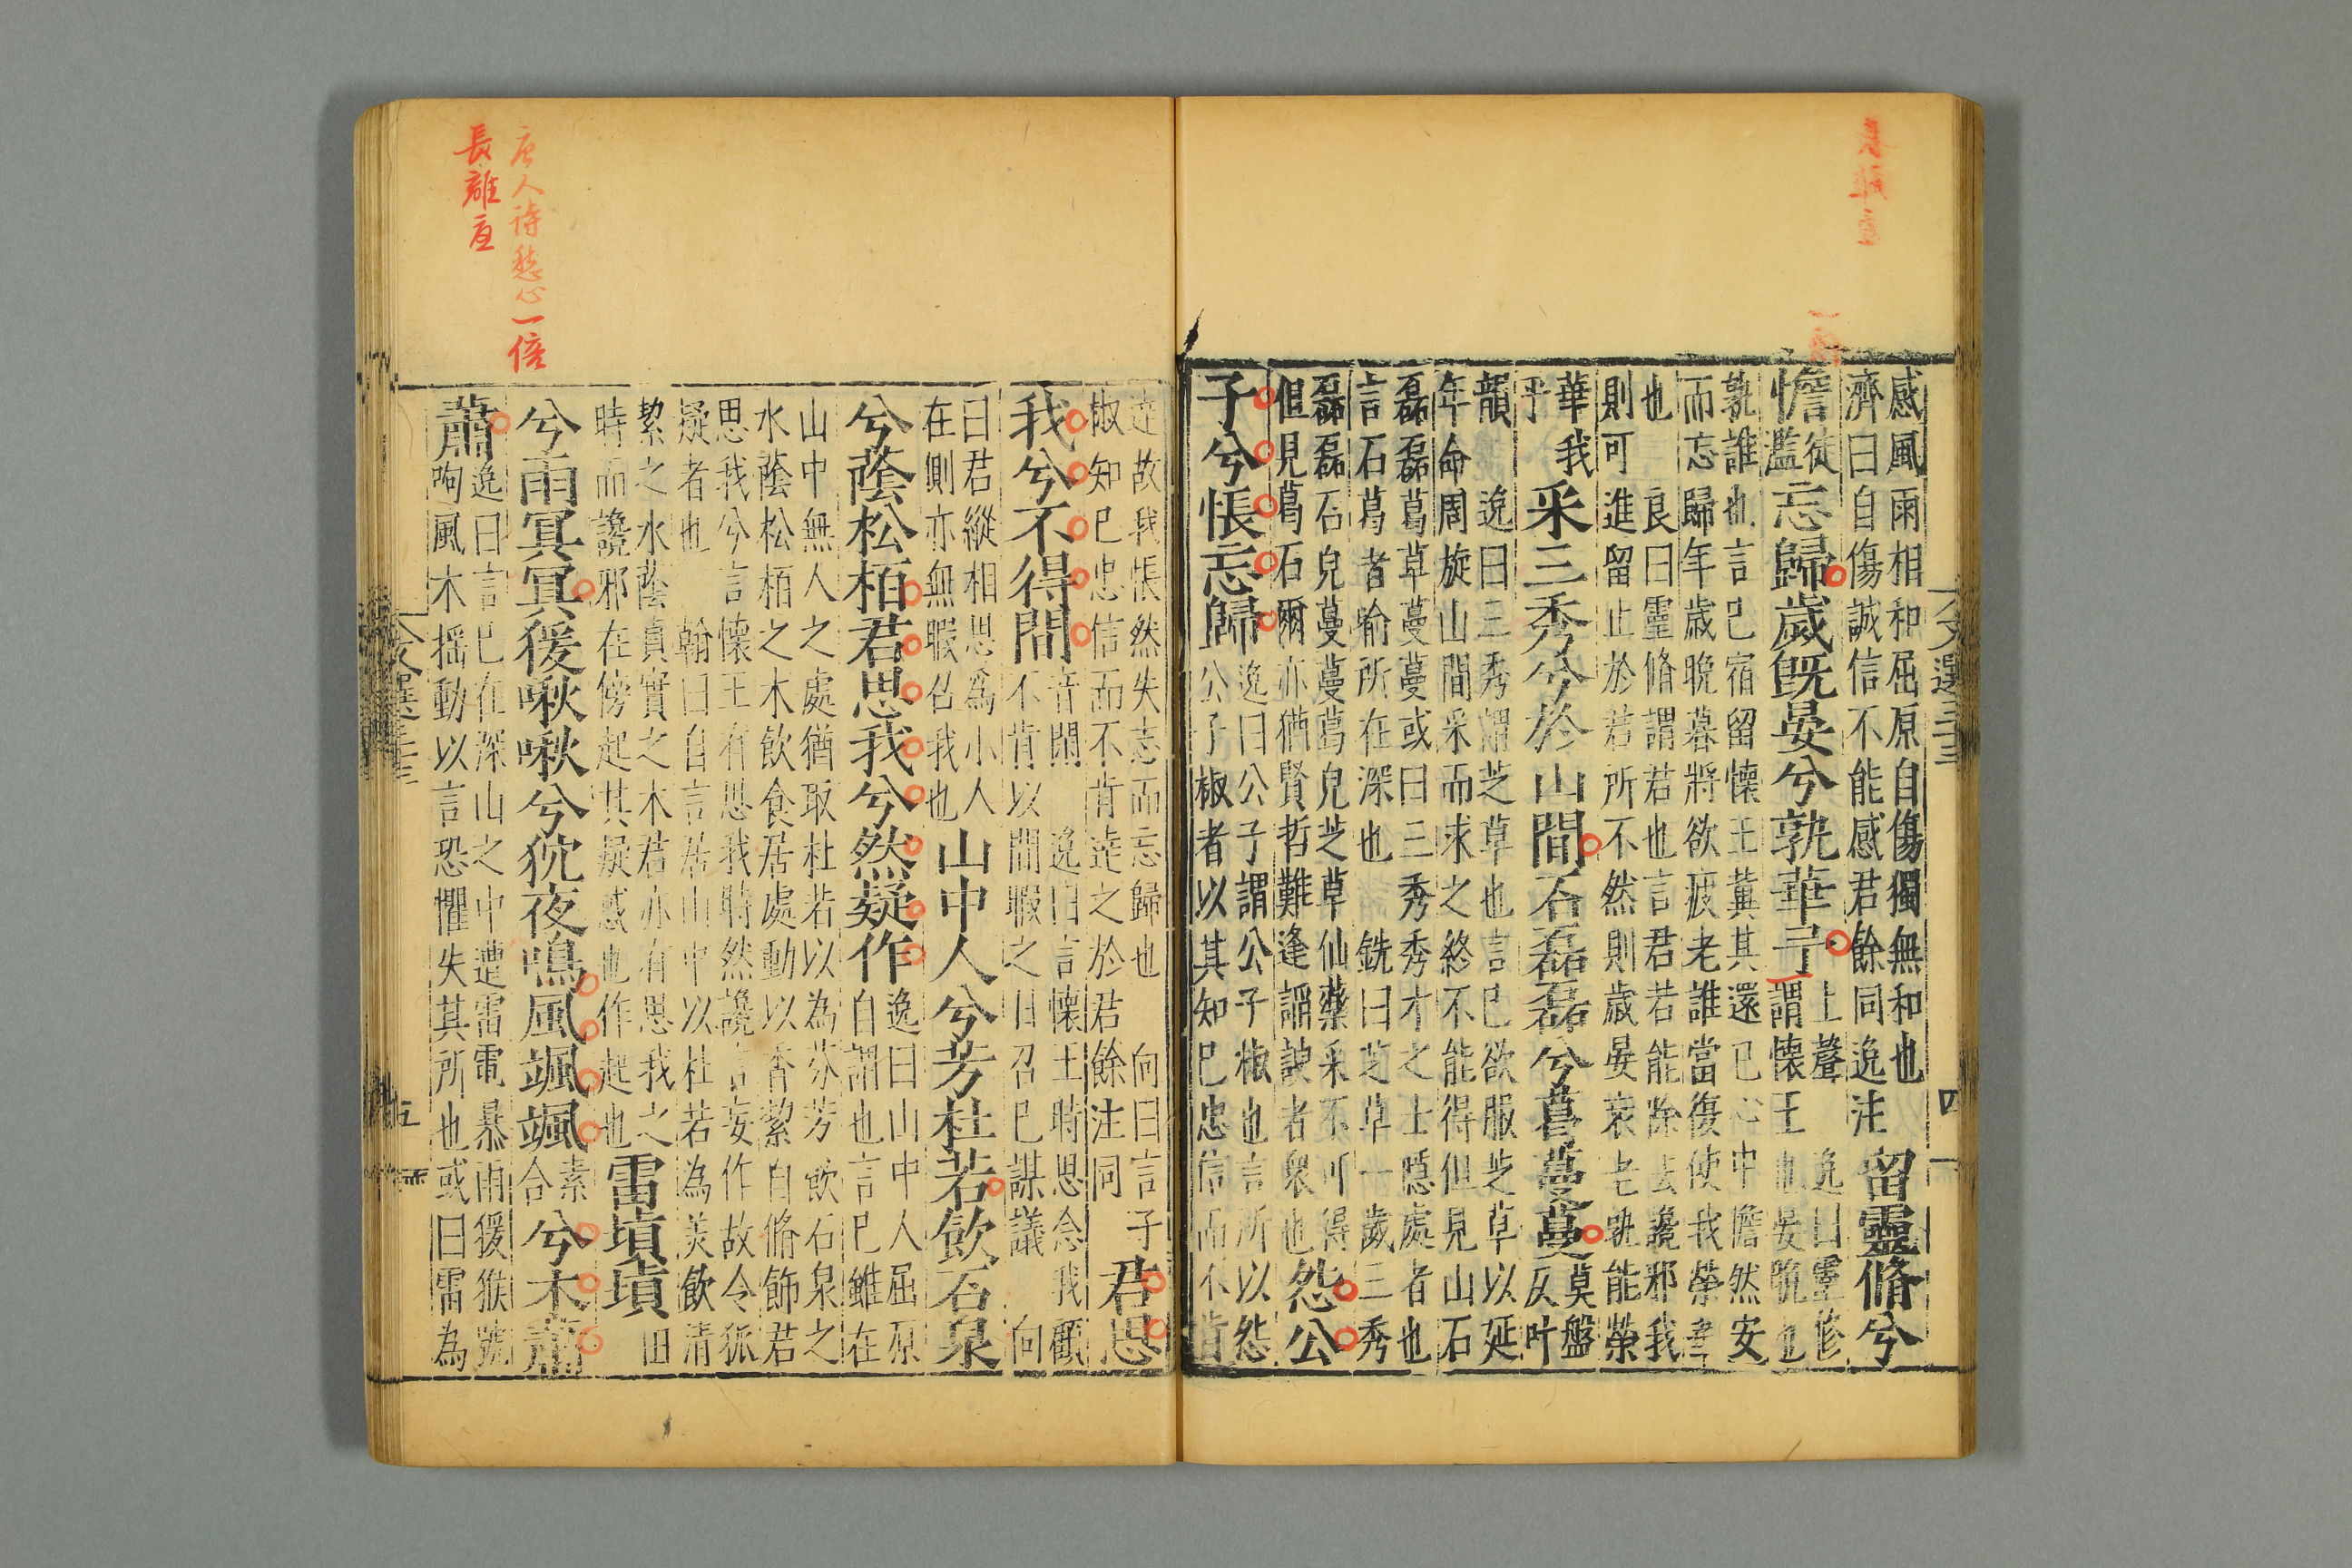 感風雨相和屈原自傷獨無和也
濟曰自傷誠信不能感君餘同逸注
留靈脩兮
憺
徒
濫
忘歸歲旣晏兮孰華予
上聲
謂懷王
逸曰靈修
也晏晩也
孰誰也言己宿留懷王冀其還己心中憺然安
而忘歸年歲晩暮將欲疲老誰當復使我榮華
也
良曰靈脩謂君也言君若能除去讒邪我
則可進留止於君所不然則歲晏衰老孰能榮
華我
乎
采三秀兮於山間石磊磊兮葛蔓蔓
莫盤
仄叶
韻
逸曰三秀謂芝草也言己欲服芝草以延
年命周旋山間采而求之終不能得但見山石
磊磊葛草蔓蔓或曰三秀秀才之士隱處者也
言石葛者喻所在深也
銑曰芝草一歲三秀
磊磊石皃蔓蔓葛皃芝草仙藥采不可得
但見葛石爾亦猶賢哲難逢諂諛者衆也
怨公
子兮悵忘歸
逸曰公子謂公子椒也言所以怨
公子椒者以其知己忠信而不肯
達故我悵然失志而忘歸也
向曰言子
椒知己忠信而不肯達之於君餘注同
君思
我兮不得閒
音閑
逸曰言懷王時思念我顧
不肯以閒暇之日召己謀議
向
曰君縱相思爲小人
在側亦無暇召我也
山中人兮芳杜若飲石泉
兮蔭松栢君思我兮然疑作
逸曰山中人屈原
自謂也言己雖在
山中無人之處猶取杜若以為芬芳飲石泉之
水蔭松栢之木飲食居處動以香絜自脩飾君
思我兮言懷王有思我時然讒言妄作故令狐
疑者也
翰曰自言居山中以杜若為美飲清
絜之水蔭貞實之木君亦有思我之
時而讒邪在傍起其疑惑也作起也
雷填填
田
兮雨冥冥猨啾啾兮狖夜鳴風颯颯
素
合
兮木蕭
蕭
逸曰言己在深山之中遭雷電暴雨猨猴號
呴風木揺動以言恐懼失其所也或曰雷為
文選三十三
四
五
唐人詩愁心一倍
長離